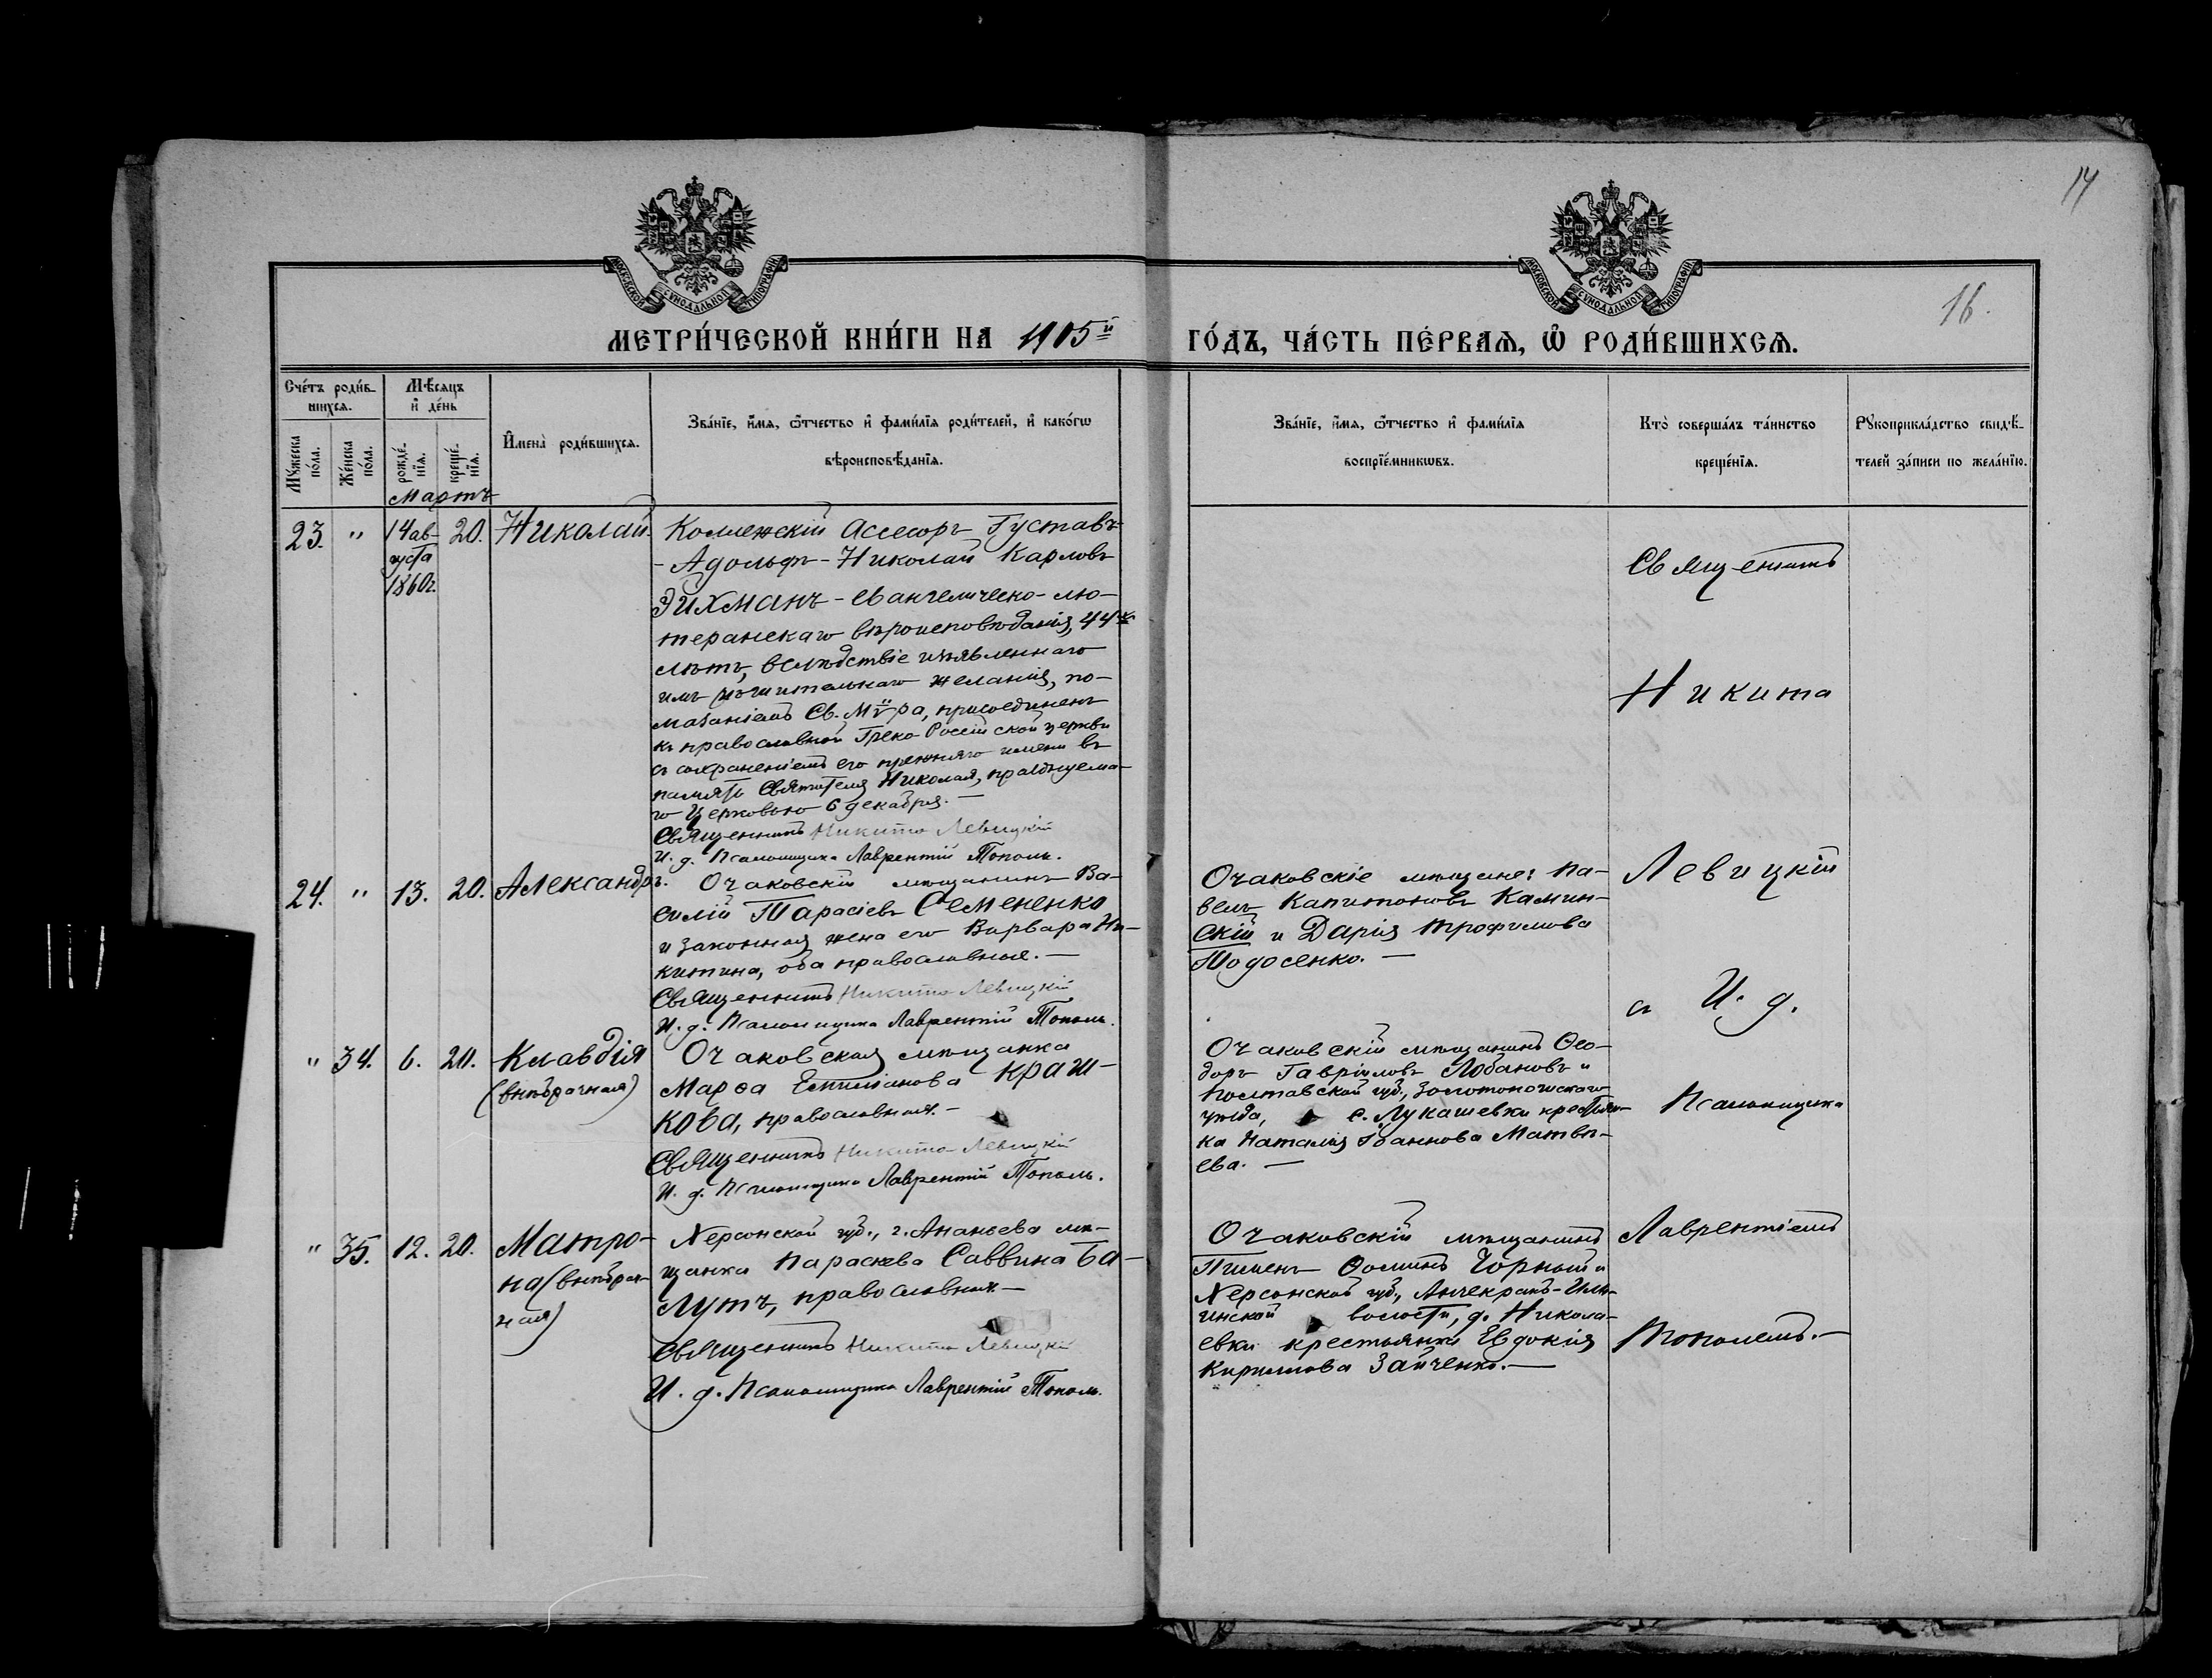 17
16.
МОСКОВСКОЙ СѴНОДАЛЬНОЙ ТИПОГРАФІИ
МОСКОВСКОЙ СѴНОДАЛЬНОЙ ТИПОГРАФІИ
МЕТРИ́ЧЕСКОЙ КНИ́ГИ НА 1905й ГО́ДЪ, ЧА́СТЬ ПЕ́РВАѦ, Ѽ РОДИ́ВШИХСѦ.
Сче́тъ роди́в-
шихсѧ.
Мѣ́сѧцъ
и де́нь
Мꙋ́жеска по́ла.
Же́нска по́ла.
рожде́-
нїѧ.
креще́-
нїѧ.
И҆мена̀ роди́вшихсѧ.
Зва́нїе, и҆́мѧ, ѻ҆́тчество и҆ фами́лїѧ роди́телей, и҆ како́гѡ
вѣроисповѣ́данїѧ.
Зва́нїе, и҆́мѧ, ѻ҆́тчество и҆ фами́лїѧ
воспрїе́мникѡвъ.
Кто̀ соверша́лъ та́инство
креще́нїѧ.
Рꙋкоприкла́дство свидѣ́-
телей за́писи по жела́нїю.
Мартъ
23. " 14 ав- 20. Николай.
густа
1860г.
Коллежскій Ассесоръ Густавъ-
-Адольфъ-Николай Карловъ
Эйхманъ - евангелическо-лю-
теранскаго вѣроисповѣданія, 44х
лѣтъ, вслѣдствіе изъявленнаго
имъ рѣшительнаго желанія, по-
мазаніемъ Св. Мѵра, присоединенъ
къ православной Греко-Россійской церкви
съ сохраненіемъ его прежняго имени въ
память Святителя Николая, празднуема-
го Церковью 6 декабря. —
Священникъ Никита Левицкій
И. д. Псаломщика Лаврентій Тополь.
24. " 13. 20. Александръ.
Очаковскій мѣщанинъ Ва-
силій Тарасіевъ Семененко
и законная жена его Варвара Ни-
китина, оба православные. —
Священникъ Никита Левицкій
И. д. Псаломщика Лаврентій Тополь.
Очаковскіе мѣщане: Па-
велъ Капитоновъ Камин-
скій и Дарія Трофимова
Тодосенко. —
" 34. 6. 20. Клавдія
(внѣбрачная)
Очаковская мѣщанка
Марѳа Емиліанова Краш-
кова, православная. —
Священникъ Никита Левицкій
И. д. Псаломщика Лаврентій Тополь.
Очаковскій мѣщанинъ Ѳео-
доръ Гавріиловъ Лобановъ и
Полтавской губ., Золотоношскаго
уѣзда, с. Лукашевки крестьян-
ка Наталія Іоаннова Матвѣ-
ева. —
" 35. 12. 20. Матро-
на (внѣбрач-
ная)
Херсонской губ., г. Ананьева мѣ-
щанка Параскева Саввина Ба-
лутъ, православная. —
Священникъ Никита Левицкій
И. д. Псаломщика Лаврентій Тополь.
Очаковскій мѣщанинъ
Пименъ Ѳоминъ Чорный и
Херсонской губ.,
волости, д. Никола-
евки крестьянка Евдокія
Кириллова Зайченко. —
Священникъ
Никита
Левицкій
съ И. д.
Псаломщика
Лаврентіемъ
Тополемъ. —